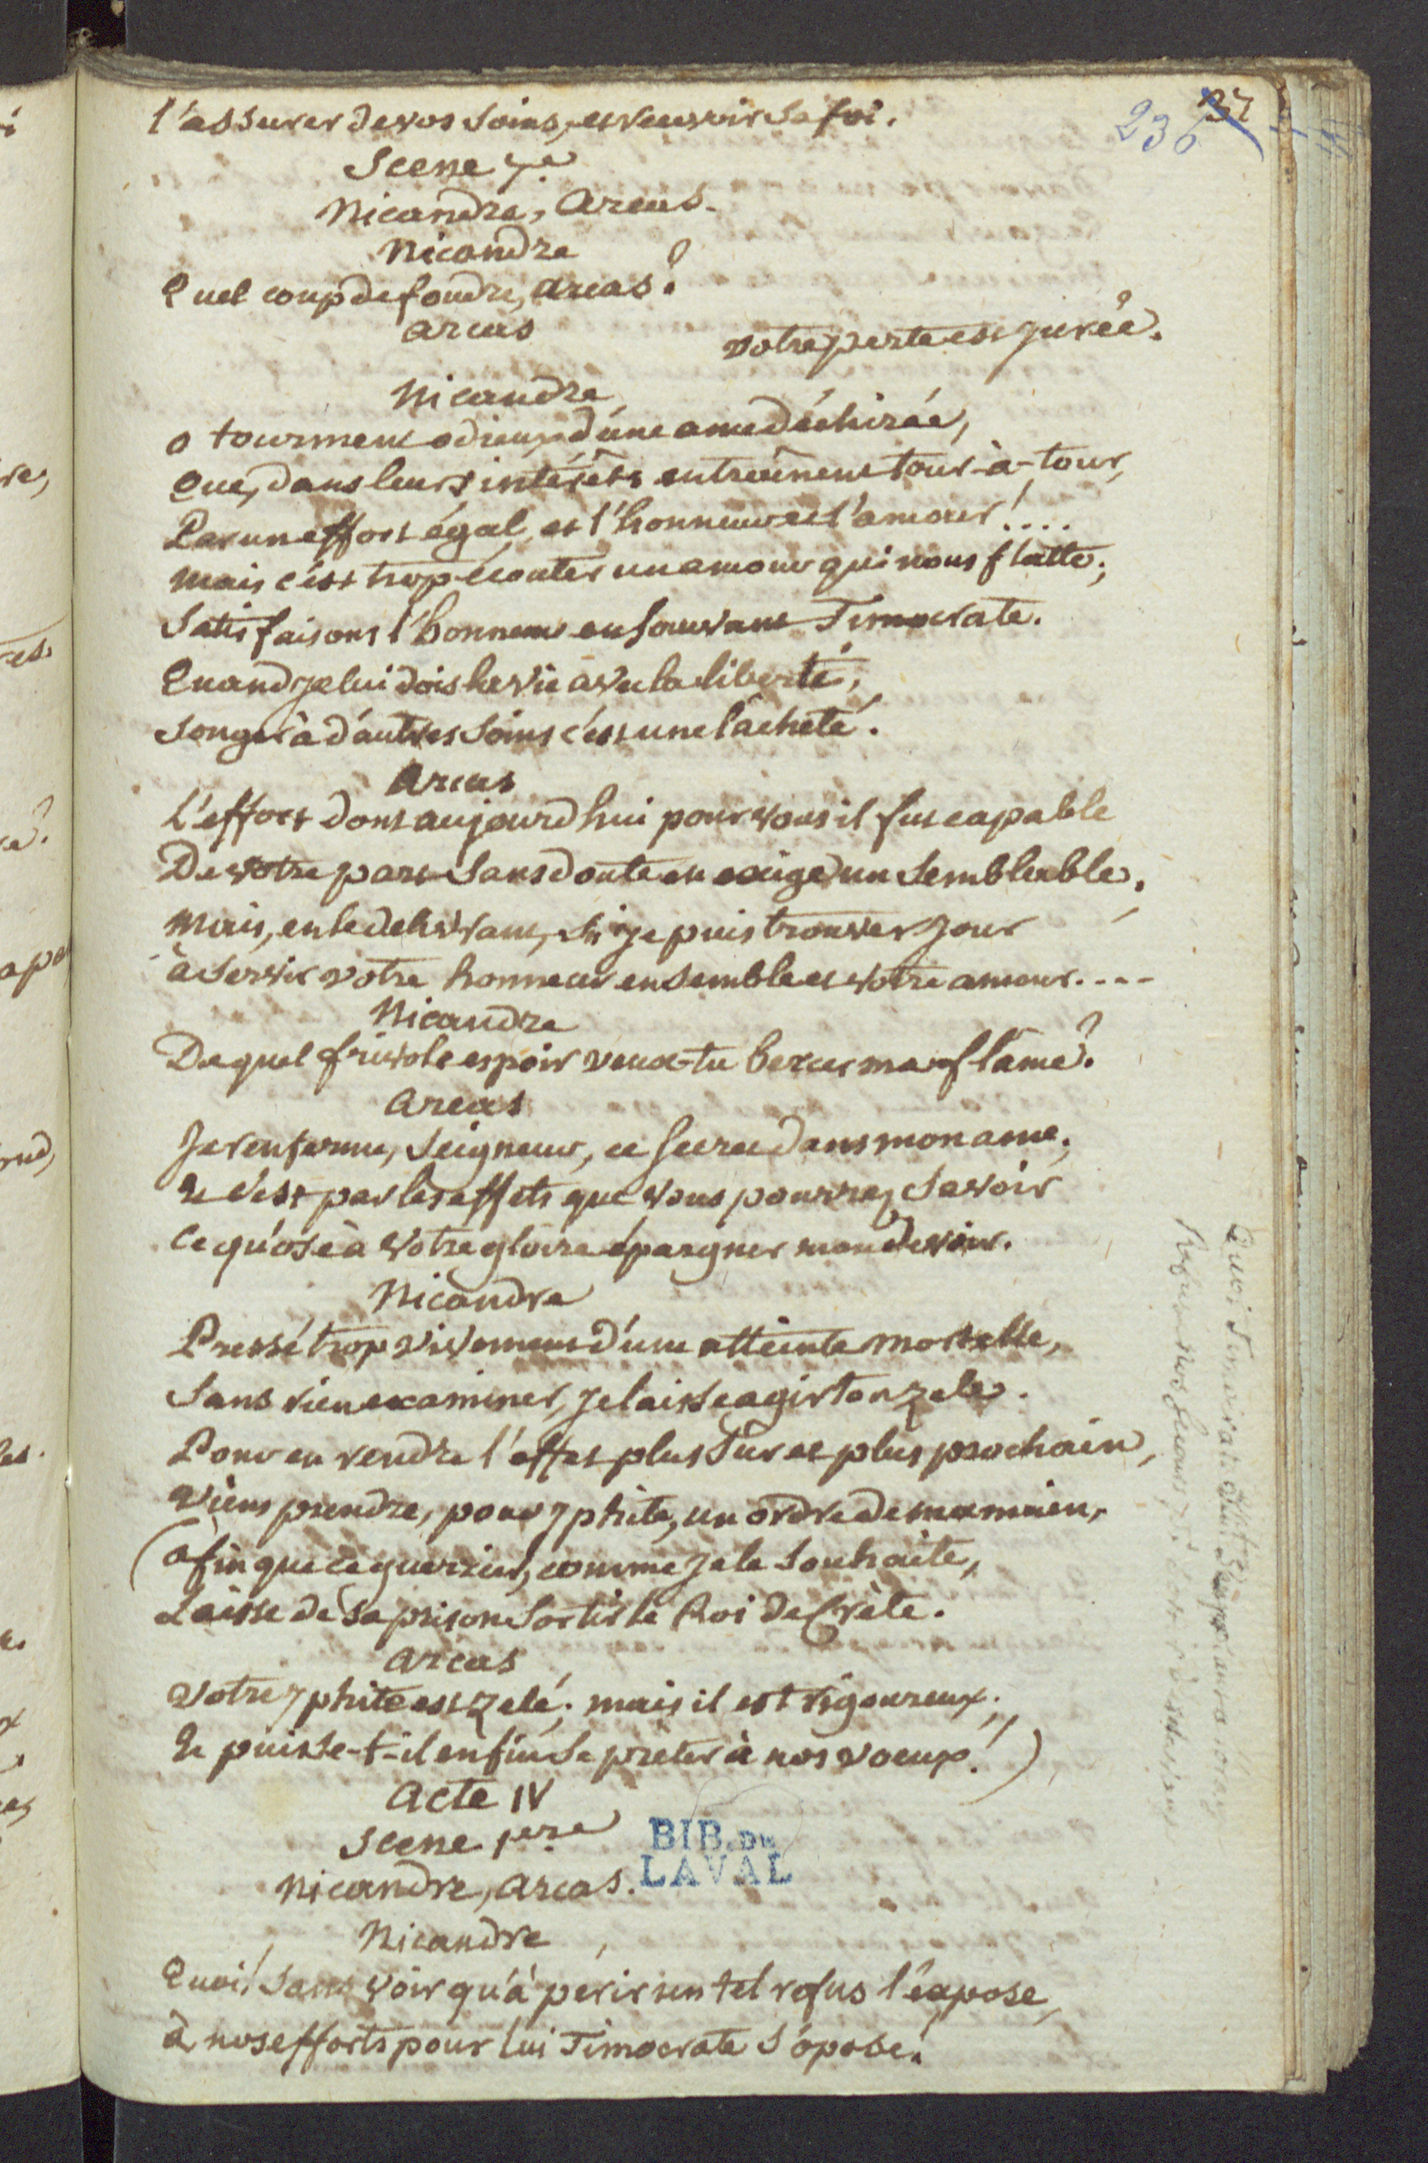 37
236
l'assurer de vos soins, et recevoir sa foi.
Scene 7e
Nicandre, Arcas.
Nicandre
Quel coup de foudre, Arcas!
Arcas
votre perte est jurée.
Nicandre
o tourment odieux d'une ame déchirée,
Que, dans leurs intérêts entrainent tour-à-tour,
Par un effort égal, et l'honneur et l'amour!....
Mais c'est trop écouter un amour qui nous flatte;
Satisfaisons l'honneur en sauvant Timocrate.
Quand je lui dois la vie avec la liberté,
Songer à d'autres soins c'est une lâcheté.
Arcas
L'effort dont aujourd'hui pour vous il fut capable
De votre part sans doute en exige un semblable.
Mais, en le délivrant, si je puis trouver jour
à servir votre honneur ensemble et votre amour....
Nicandre
De quel frivole espoir veux-tu bercer ma flâme?
Arcas
Je renferme, Seigneur, ce secret dans mon ame;
Et c'est par les effets que vous pourrez savoir
Ce qu'ose à votre gloire épargner mon devoir.
Nicandre
Pressé trop vivement d'une atteinte mortelle,
Sans rien examiner, je laisse agir ton zele.
Pour en rendre l'effet plus sur et plus prochain,
Viens prendre, pour yphite, un ordre de ma main,
(afin que ce guerrier, comme je le souhaite,
Laisse de sa prison sortir le Roi de Crète.
Arcas
Votre yphite est zelé; mais il est rigoureux;
Et puisse-t-il enfin se prêter à nos voeux!)
Acte IV
Scene 1ere
Nicandre, Arcas.
BIB. DE
LAVAL
Nicandre
Quoi! sans voir qu'à périr un tel refus l'expose,
à nos efforts pour lui Timocrate s'opose!
Quoi! Timocrate
Refuse nos secours